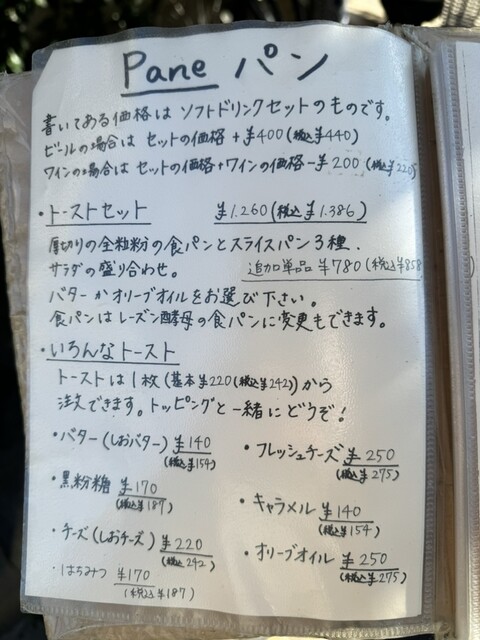 Pane パン
書いてある価格は ソフトドリンクセットのものです。
ビールの場合は セットの価格 + ¥400(税込¥440)
ワインの場合は セットの価格+ワインの価格-¥200(税込¥220)
・トーストセット ¥1.260(税込¥1.386)
厚切りの全粒粉の食パンとスライスパン3種、
サラダの盛り合わせ。 追加単品 ¥780(税込¥858
バターかオリーブオイルをお選び下さい。
食パンはレーズン酵母の食パンに変更もできます。
・いろんなトースト
トーストは1枚(基本¥220(税込¥242)から
注文できます。トッピングと一緒にどうぞ!
・バター(しおバター) ¥140
(税込¥154)
・黒粉糖 ¥170
(税込¥187)
・チーズ(しおチーズ) ¥220
(税込242)
・はちみつ ¥170
(税込¥187)
・フレッシュチーズ ¥250
(税込¥275)
・キャラメル ¥140
(税込¥154)
・オリーブオイル ¥250
(税込¥275)